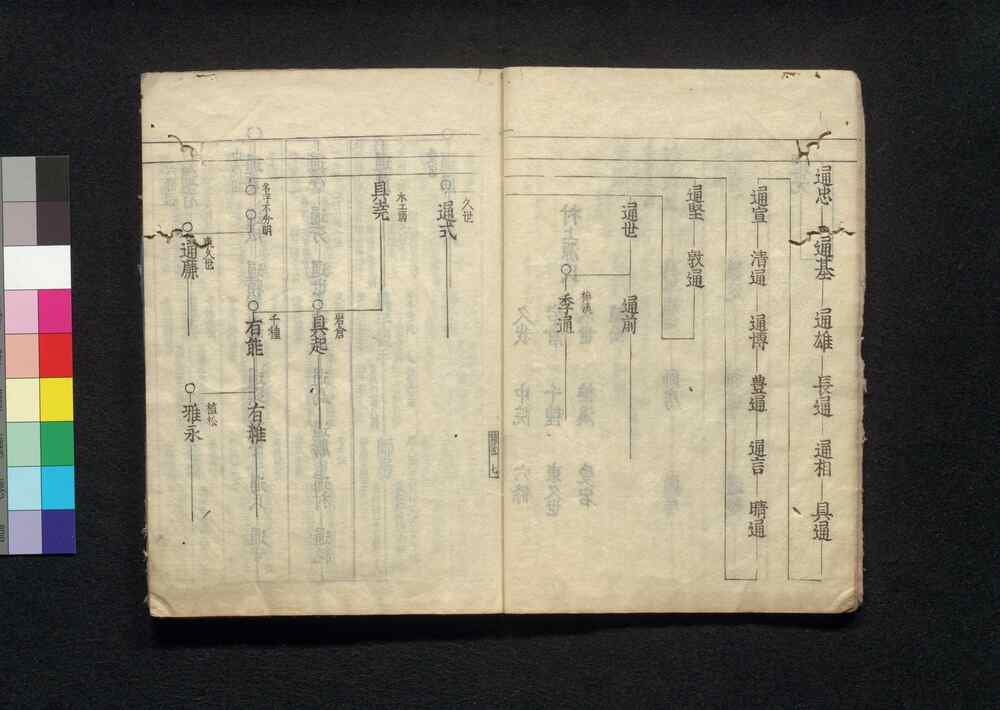 通忠 通基 通雄 長通 通相 具通
通宣 清通 通博 豊通 通言 晴通
通堅 敦通
通世 通前
梅渓
季通
久世
通式
水工房
具堯
岩倉
具起
名字不分明
千種
有能 有維
東久世
通廉
植松
雅永